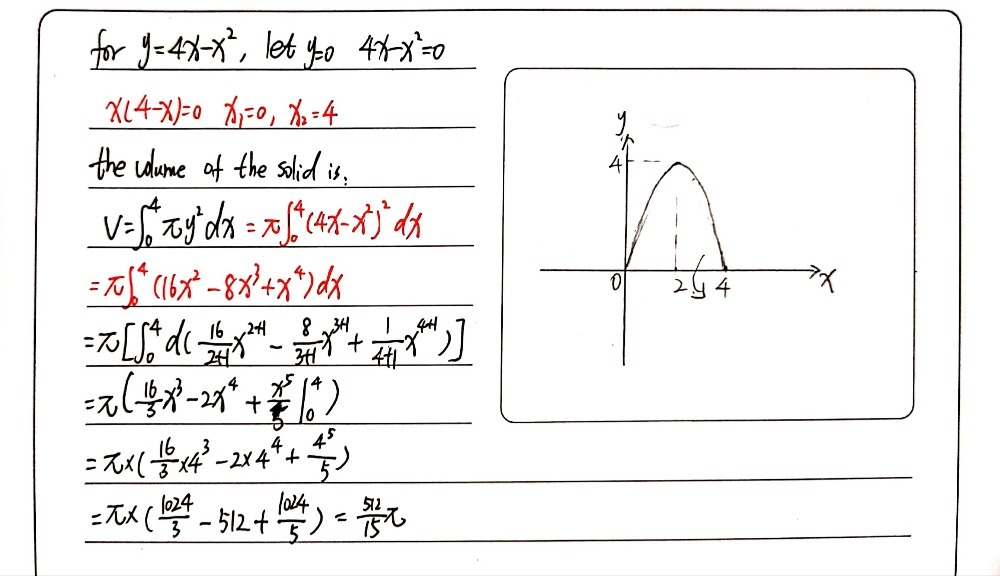 for y=4x-x², let y=0 4x-x²=0
x(4-x)=0 x₁=0, x₂=4
the volume of the solid is:
V=∫₀⁴ πy²dx = π∫₀⁴ (4x-x²)² dx
=π∫₀⁴ (16x² - 8x³ + x⁴) dx
=π[∫₀⁴ d(16/(2+1) x²⁺¹ - 8/(3+1) x³⁺¹ + 1/(4+1) x⁴⁺¹)]
=π(16/3 x³ - 2x⁴ + x⁵/5 |₀⁴)
=π×(16/3 ×4³ - 2×4⁴ + 4⁵/5)
=π×(1024/3 - 512 + 1024/5) = 512/15 π
y
4
0 2 4 x